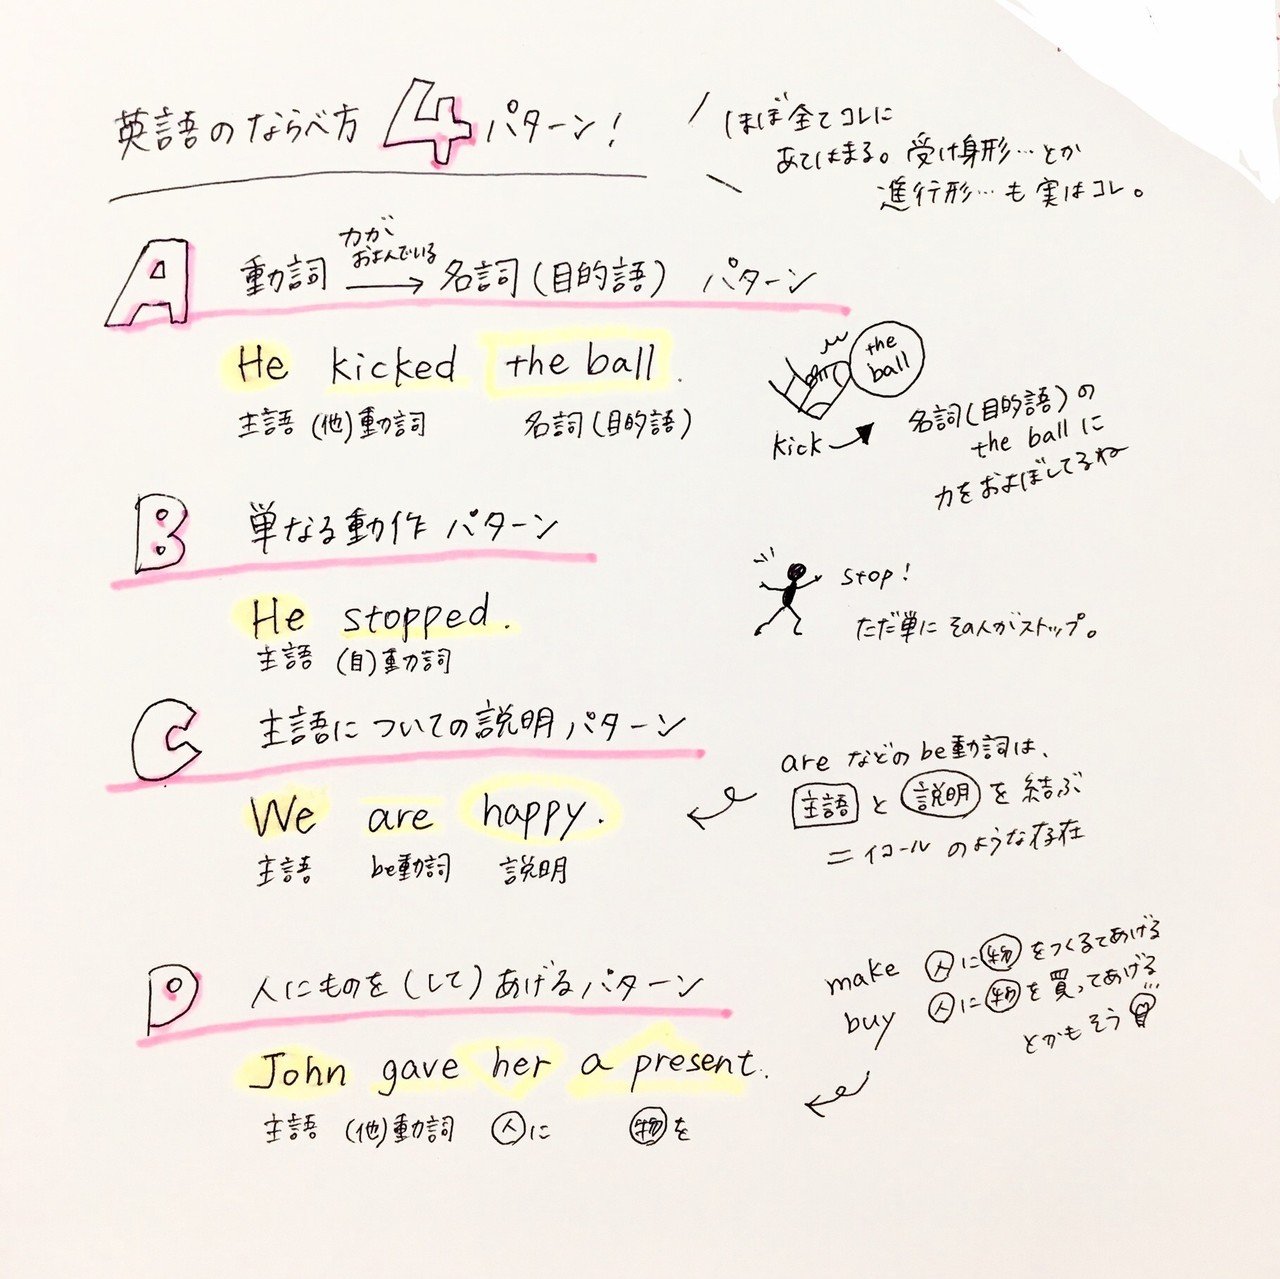 英語のならべ方 4 パターン！
ほぼ全てコレに
あてはまる。受け身形…とか
進行形…も実はコレ。
A 動詞 力がおよんでいる → 名詞(目的語) パターン
He kicked the ball.
主語 (他)動詞 名詞(目的語)
the
ball
kick
名詞(目的語)の
the ball に
力をおよぼしてるね
B 単なる動作パターン
He stopped.
主語 (自)動詞
stop!
ただ単にその人がストップ。
C 主語についての説明パターン
We are happy.
主語 be動詞 説明
are などの be動詞は、
主語 と 説明 を結ぶ
＝イコールのような存在
D 人にものを(して)あげるパターン
John gave her a present.
主語 (他)動詞 人に 物を
make 人に物をつくるてあげる
buy 人に物を買ってあげる…
とかもそう